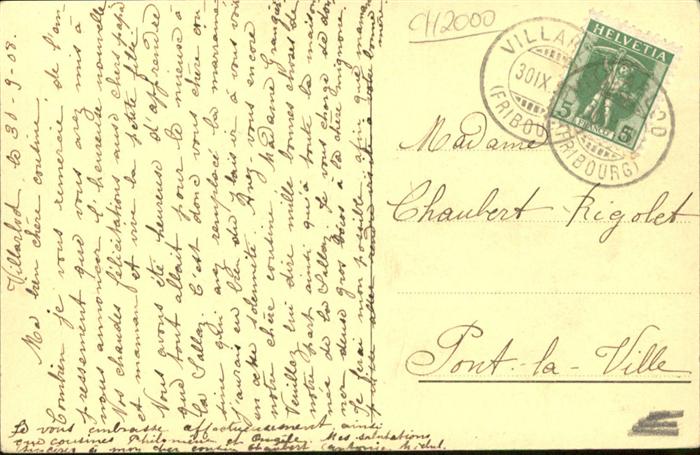 CH2000
HELVETIA
5 FRANCO 5
VILLAR
30 IX
(FRIBOURG)
Madame
Chaubert Rigolet
Pont-la-Ville
Villarlod, le 30-9-08.
Ma bien chère cousine,
Combien je vous remercie, de l'em-
pressement que vous avez mis à
nous annoncer l'heureuse nouvelle
Nos chaudes félicitations aux chers papa
et maman et vive la petite fête
Nous avons été heureux d'apprendre
que tout allait pour le mieux à
La Sallaz. C'est donc vous chère cou-
sine qui avez remplacé la marraine
j'aurais eu bien du plaisir à vous voir
en cette solennité. Avez vous encore
notre chère cousine, Madame Grangier
Veuillez lui dire mille bonnes choses de
notre part ainsi qu'à toute la maison-
née de la Sallaz. Je vous charge de don-
ner deux gros bécos à la chère mignonne.
Je ferai mon possible afin que maman
puisse aller rendre visite à votre
Je vous embrasse affectueusement ainsi
que cousines Philomène et Mes salutations
sincères à mon cher cousin Chaubert